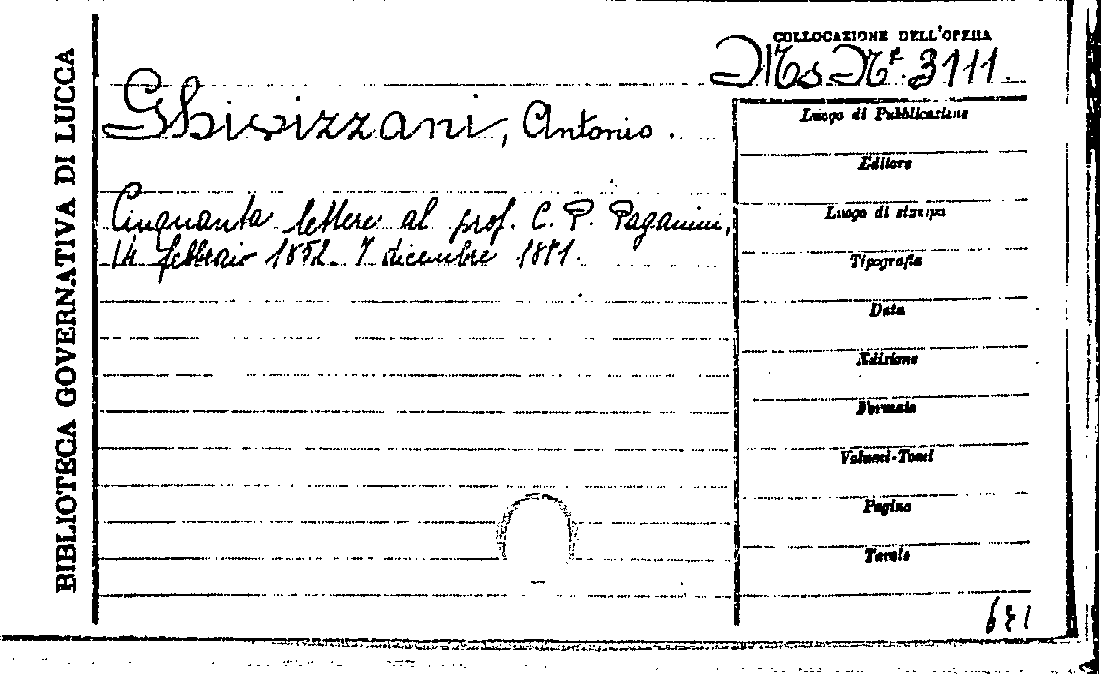 BIBLIOTECA GOVERNATIVA DI LUCCA
COLLOCAZIONE DELL'OPERA
Ms Nº. 3111.
Ghivizzani, Antonio.
Cinquanta lettere al prof. C. P. Paganini,
14 febbraio 1882 - 7 dicembre
Luogo di Pubblicazione
Editore
Luogo di stampa
Tipografia
Data
Edizione
Formato
Volumi-Tomi
Pagine
Tavole